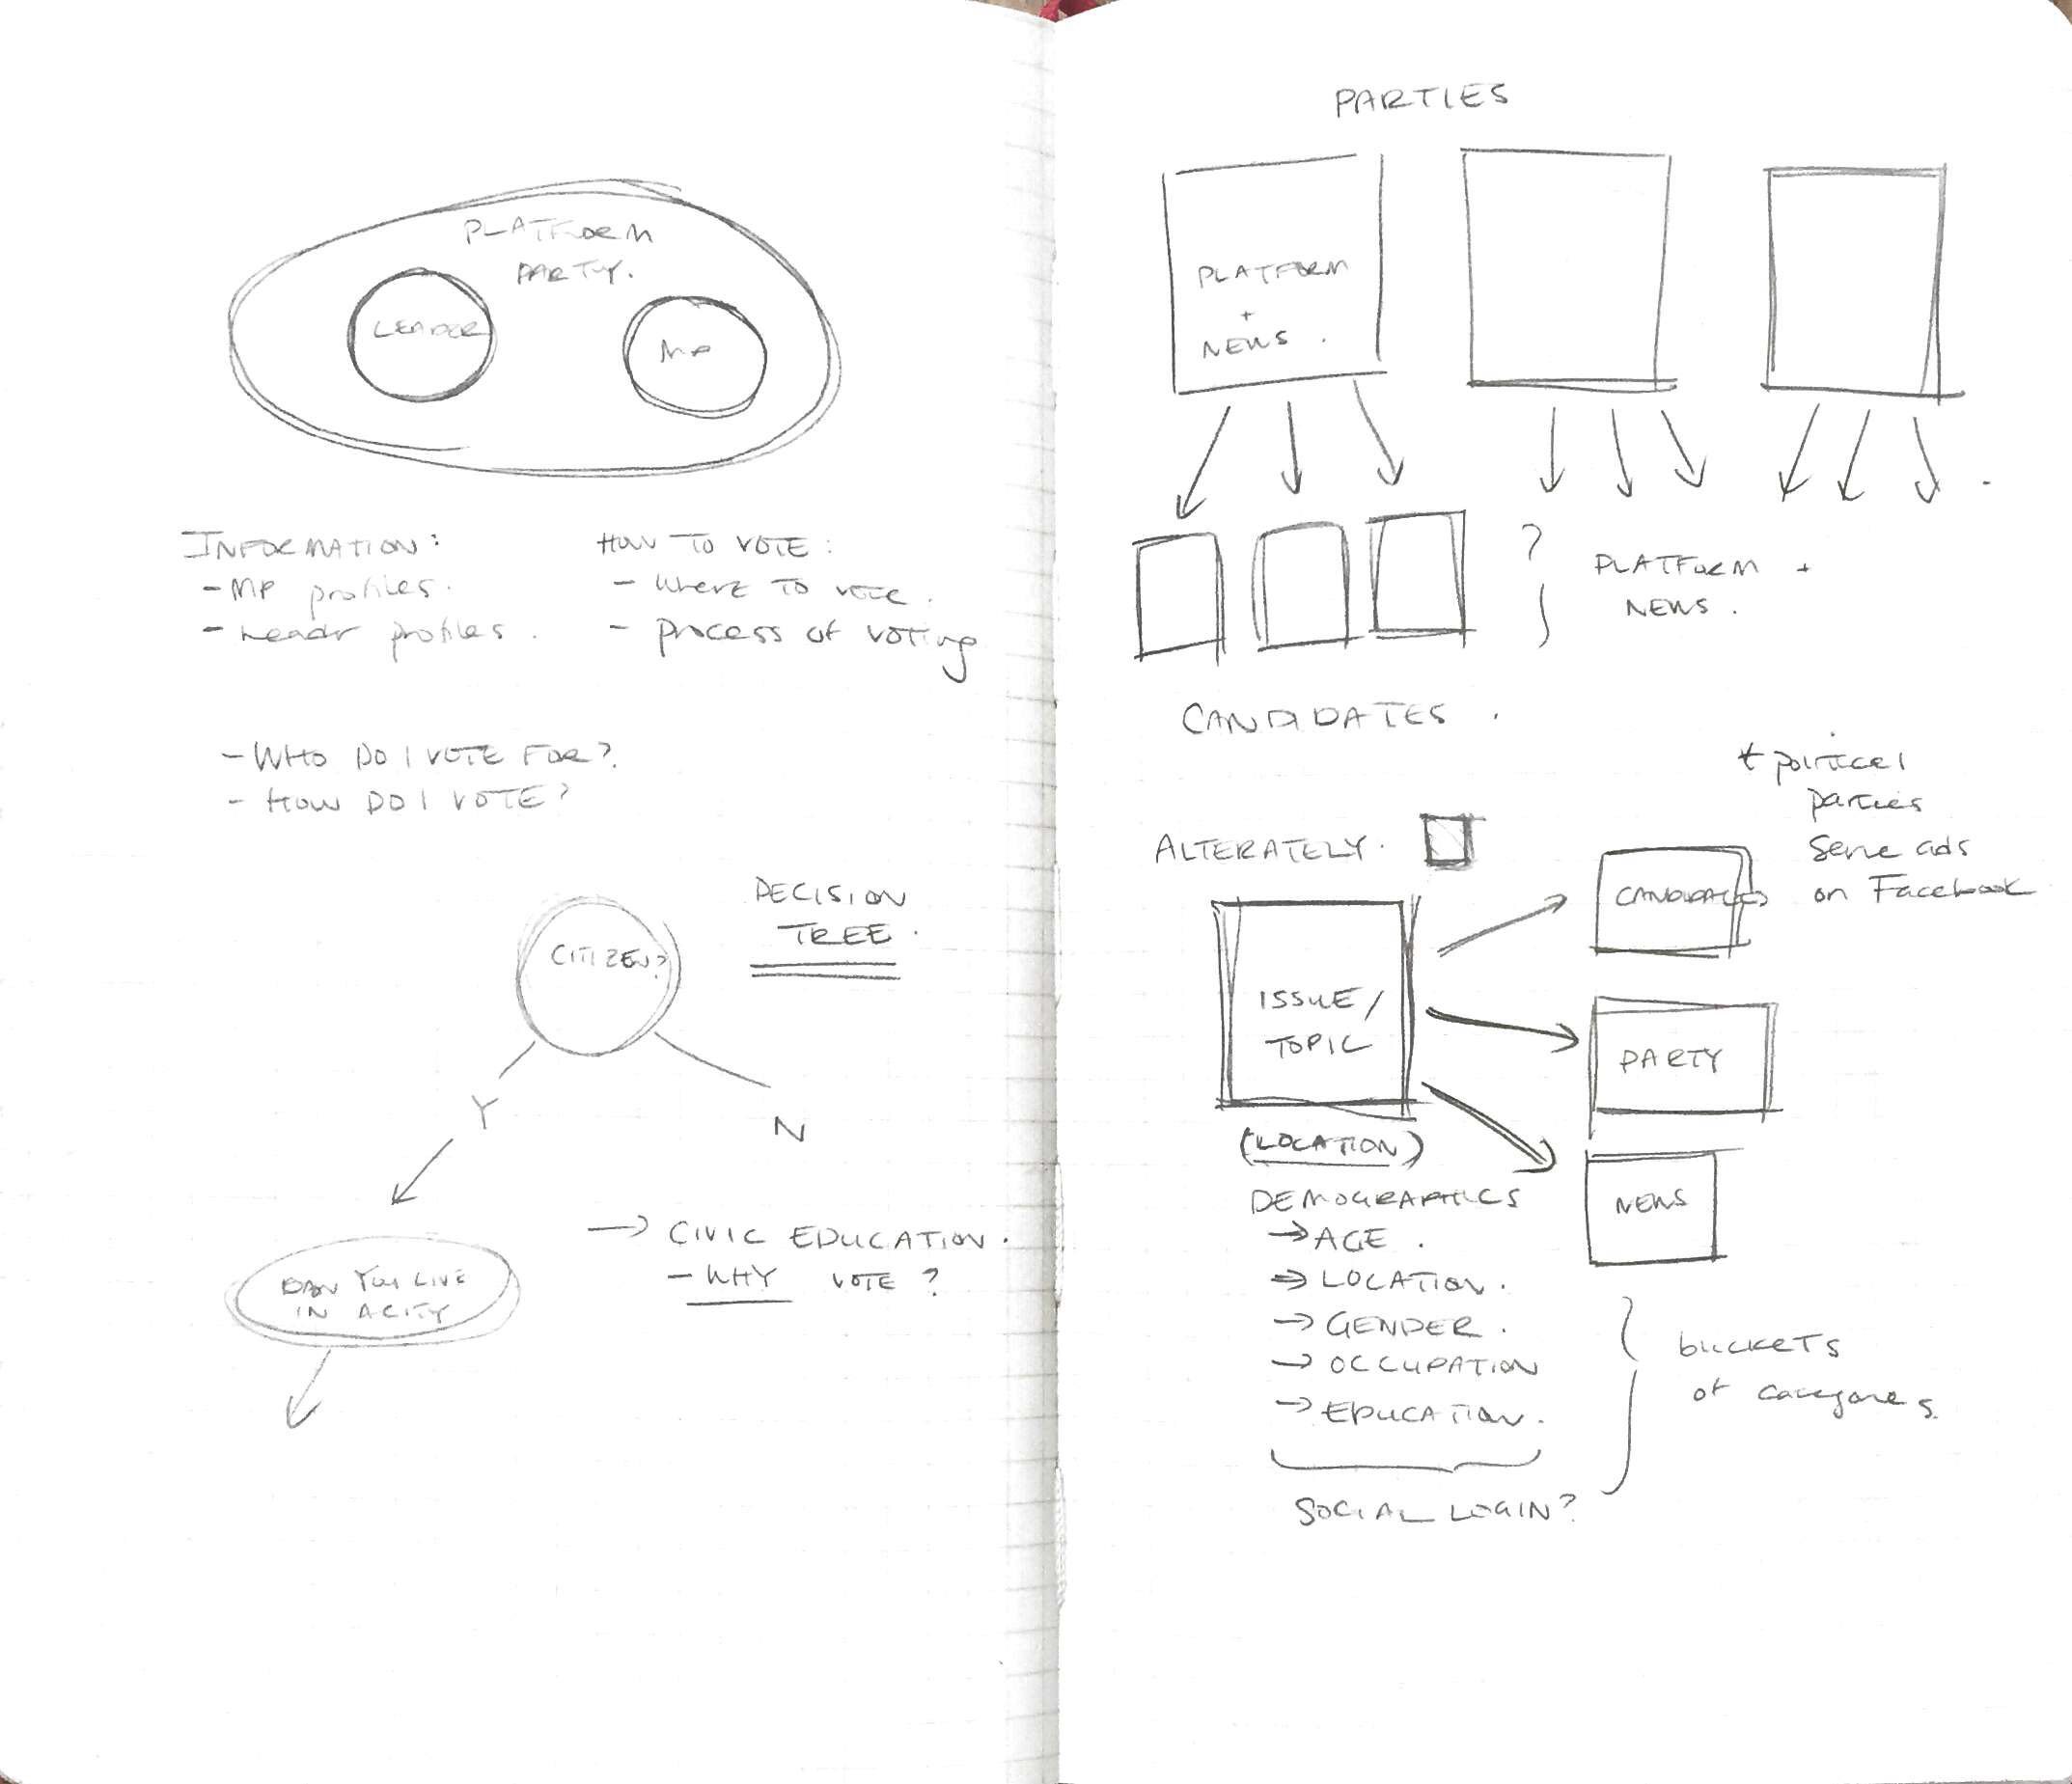 PLATFORM
PARTY.
LEADER
MP
INFORMATION:
- MP profiles.
- Leadr profiles.
HOW TO VOTE:
- where TO vote.
- process of voting
- WHO DO I VOTE FOR?
- HOW DO I VOTE?
DECISION
TREE.
CITIZEN?
Y
N
YOU LIVE
IN A CITY
→ CIVIC EDUCATION.
- WHY VOTE?
PARTIES
PLATFORM
+
NEWS.
?
PLATFORM +
NEWS.
CANDIDATES.
* political
parties
Serve ads
on Facebook
ALTERATELY.
ISSUE/
TOPIC
CANDIDATES
PARTY
NEWS
(LOCATION)
DEMOGRAPHICS
→ AGE.
→ LOCATION.
→ GENDER.
→ OCCUPATION
→ EDUCATION.
SOCIAL LOGIN?
buckets
of categories.